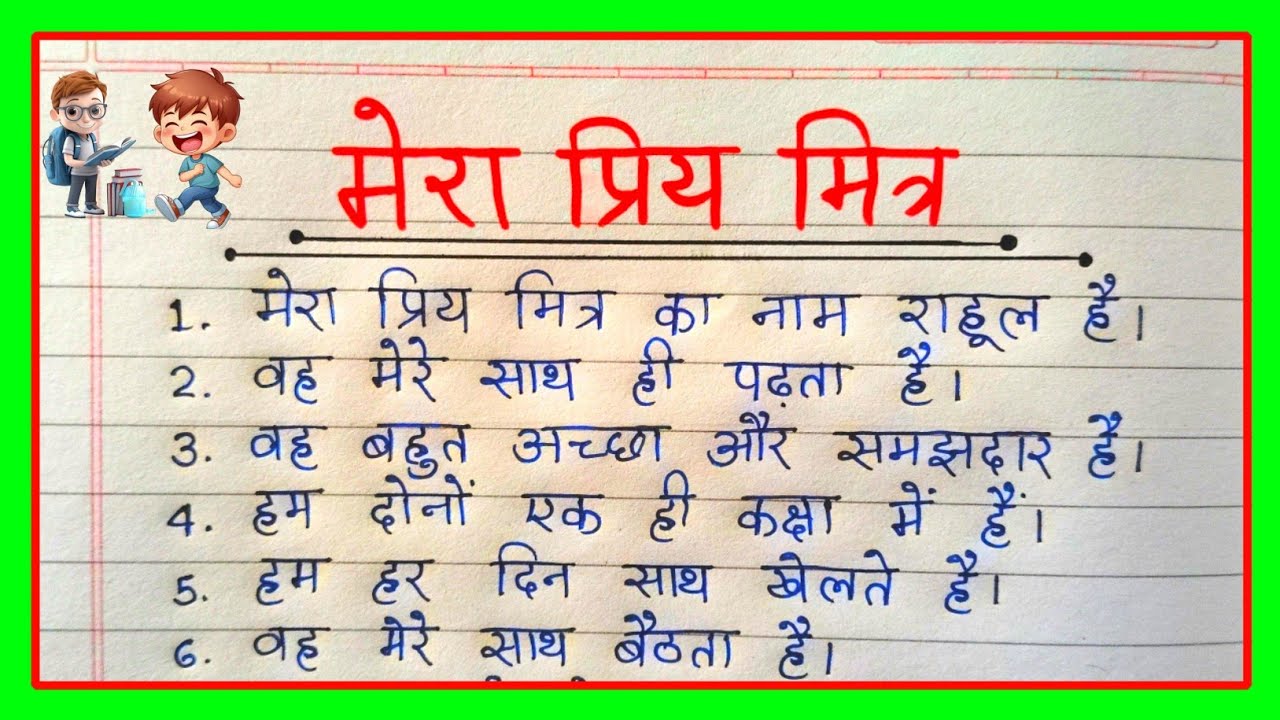 मेरा प्रिय मित्र
1. मेरा प्रिय मित्र का नाम राहूल है।
2. वह मेरे साथ ही पढ़ता है।
3. वह बहुत अच्छा और समझदार है।
4. हम दोनों एक ही कक्षा में हैं।
5. हम हर दिन साथ खेलते है।
6. वह मेरे साथ बैठता है।